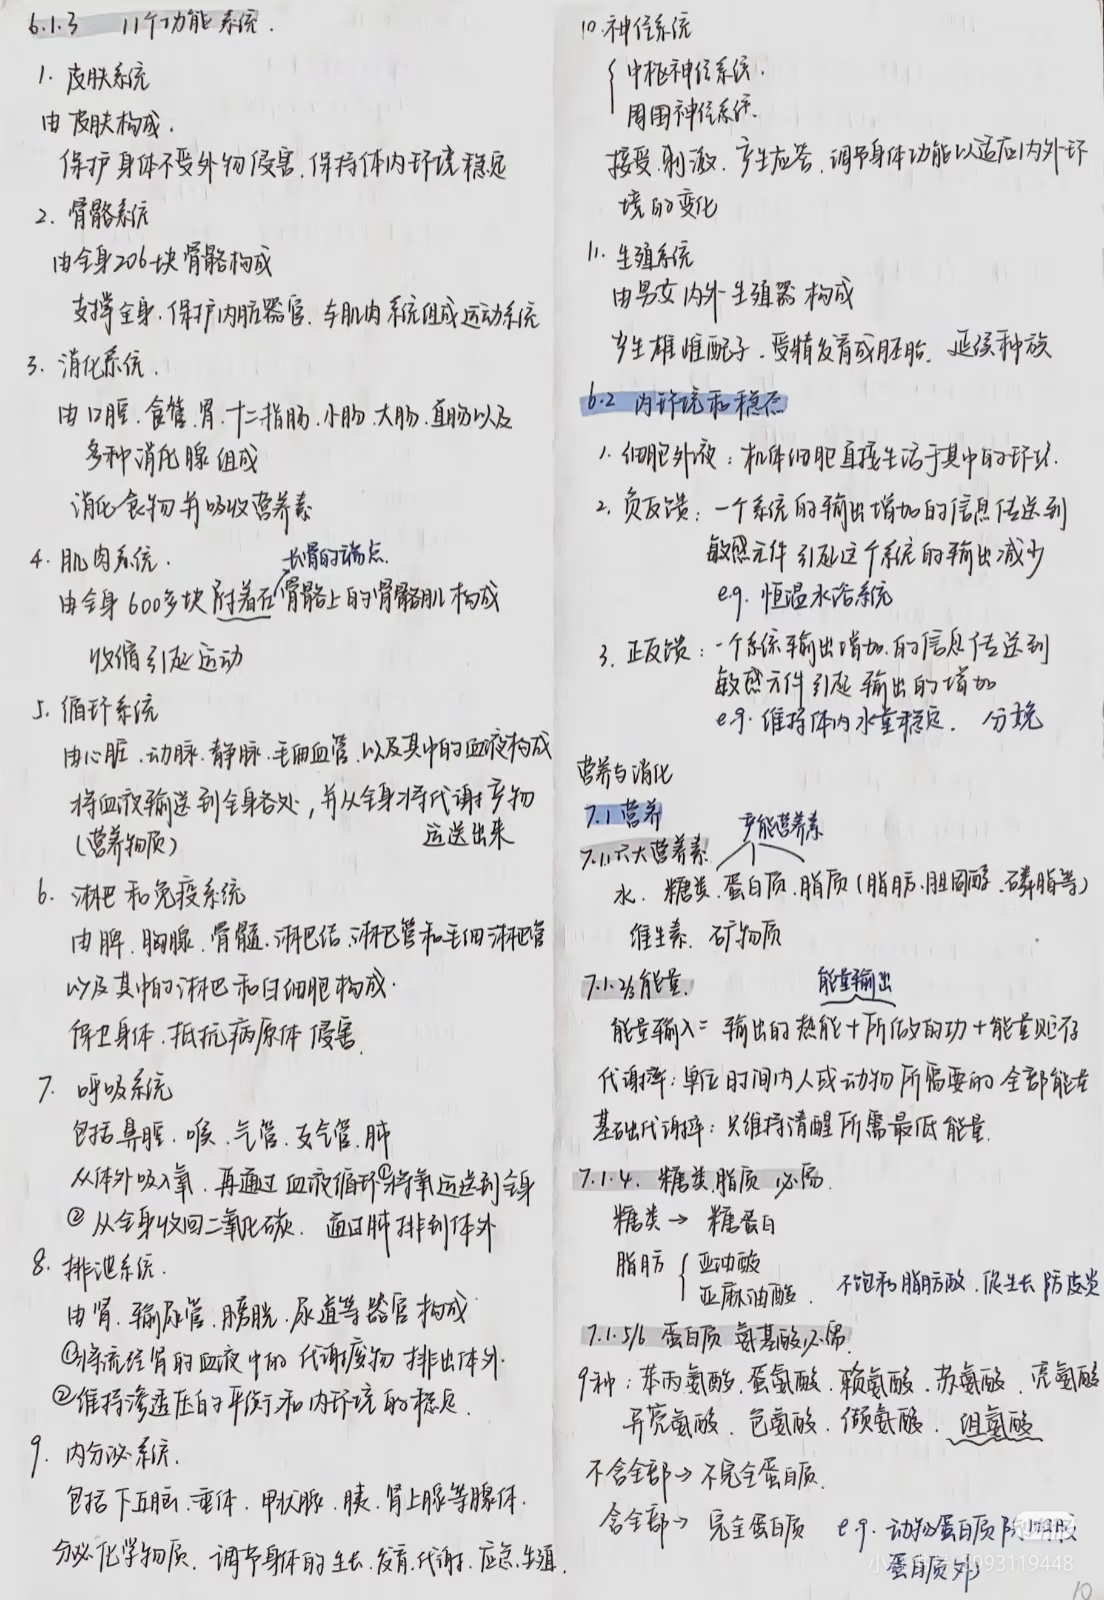 6.1.3 11个功能系统.
1. 皮肤系统
由皮肤构成.
保护身体不受外物侵害.保持体内环境稳定
2. 骨骼系统
由全身206块骨骼构成
支撑全身.保护内脏器官.与肌肉系统组成运动系统
3. 消化系统.
由口腔.食管.胃.十二指肠.小肠.大肠.直肠以及
多种消化腺组成
消化食物并吸收营养素
4. 肌肉系统. 长骨的端点.
由全身600多块附着在骨骼上的骨骼肌构成
收缩引起运动
5. 循环系统
由心脏.动脉.静脉.毛细血管.以及其中的血液构成
将血液输送到全身各处,并从全身将代谢产物
(营养物质) 运送出来
6. 淋巴和免疫系统
由脾.胸腺.骨髓.淋巴结.淋巴管和毛细淋巴管
以及其中的淋巴和白细胞构成.
保卫身体.抵抗病原体侵害.
7. 呼吸系统
包括鼻腔.喉.气管.支气管.肺
从体外吸入氧.再通过血液循环①将氧运送到全身
②从全身收回二氧化碳.通过肺排到体外
8. 排泄系统.
由肾.输尿管.膀胱.尿道等器官构成
①将流经肾的血液中的代谢废物排出体外.
②维持渗透压的平衡和内环境的稳定.
9. 内分泌系统.
包括下丘脑.垂体.甲状腺.胰.肾上腺等腺体.
分泌化学物质.调节身体的生长.发育.代谢.应急.生殖.
10.神经系统
中枢神经系统.
周围神经系统.
接受刺激.产生应答.调节身体功能以适应内外环
境的变化
11. 生殖系统
由男女内外生殖器构成
产生雄雌配子.受精发育成胚胎.延续种族
6.2 内环境和稳态
1. 细胞外液:机体细胞直接生活于其中的环境.
2. 负反馈:一个系统的输出增加的信息传送到
敏感元件引起这个系统的输出减少
e.g. 恒温水浴系统
3. 正反馈:一个系统输出增加的信息传送到
敏感元件引起输出的增加
e.g. 维持体内水量稳定. 分娩
营养与消化
7.1 营养 产能营养素
7.1.1六大营养素
水.糖类.蛋白质.脂质(脂肪.胆固醇.磷脂等)
维生素.矿物质
7.1.2/3能量. 能量输出
能量输入=输出的热能+所做的功+能量贮存
代谢率:单位时间内人或动物所需要的全部能量
基础代谢率:只维持清醒所需最低能量.
7.1.4. 糖类脂质必需.
糖类→糖蛋白
脂肪 亚油酸
亚麻油酸. 不饱和脂肪酸.促生长防皮炎
7.1.5/6 蛋白质氨基酸必需.
9种:苯丙氨酸.蛋氨酸.赖氨酸.苏氨酸.亮氨酸
异亮氨酸.色氨酸.缬氨酸.组氨酸
不含全部→不完全蛋白质.
含全部→完全蛋白质 e.g. 动物蛋白质除明胶
蛋白质外
10